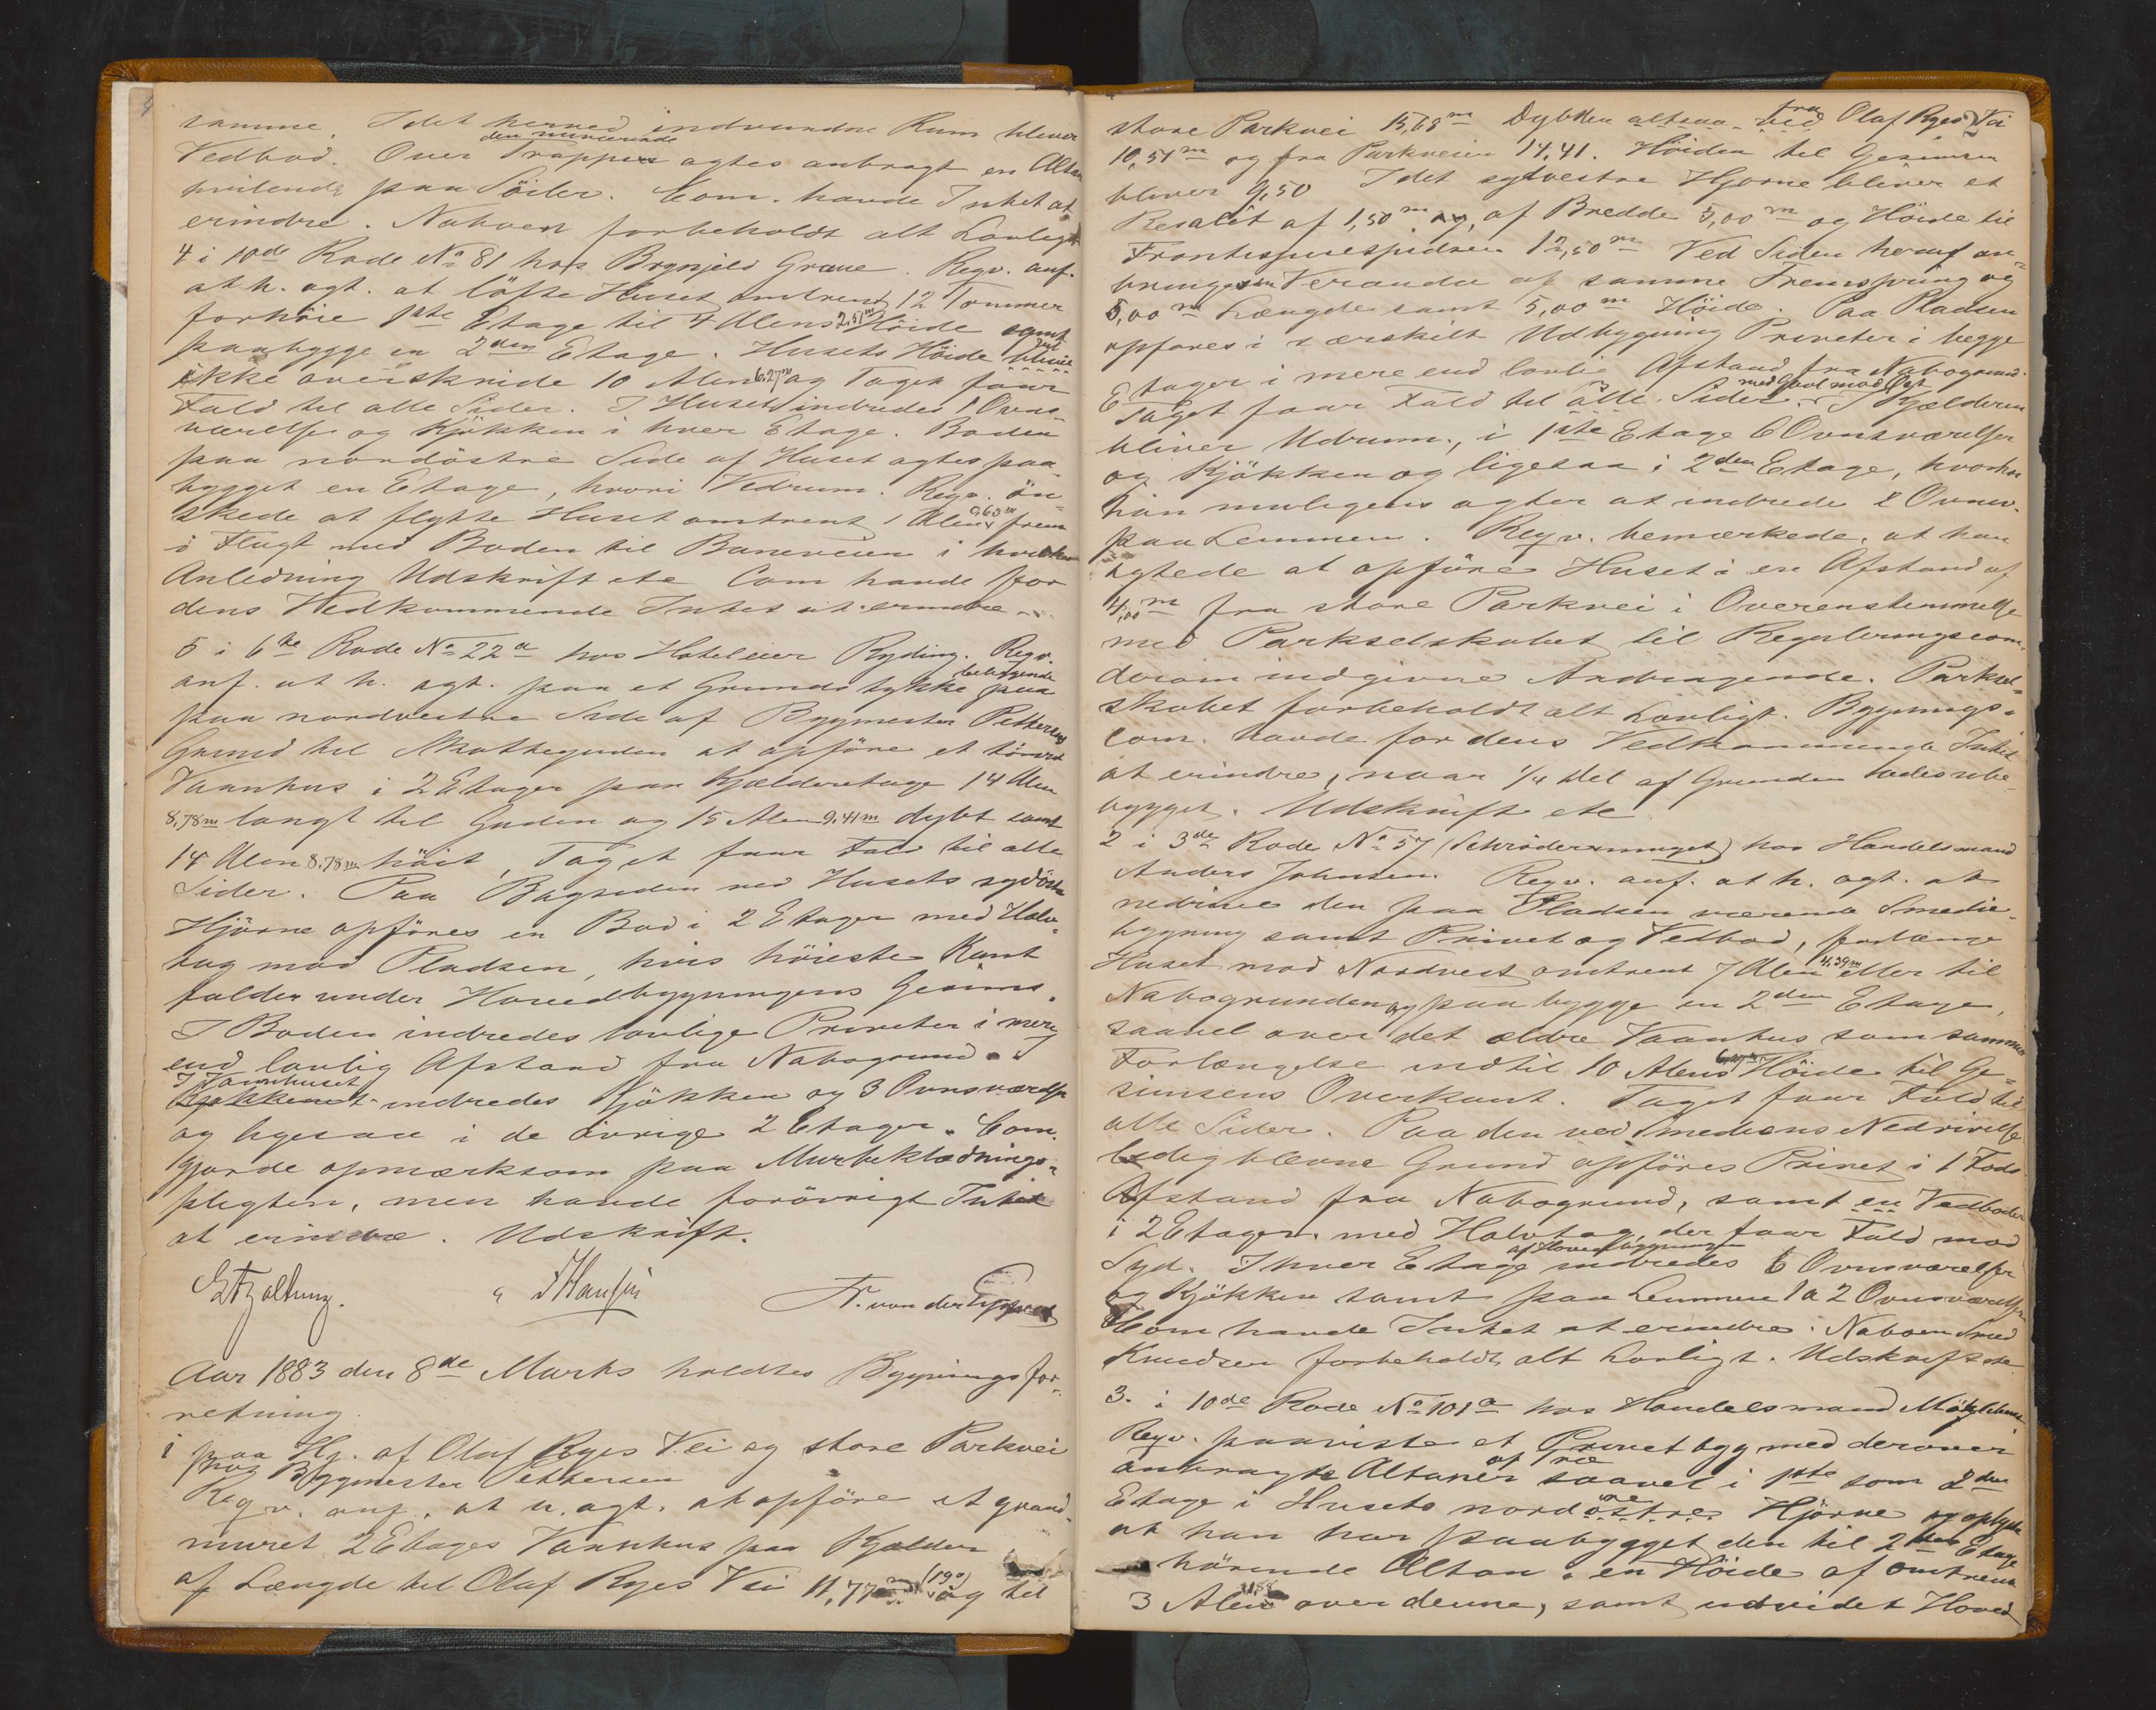 samme. I det herved indvundne Rum bliver
Vedbod. Over den nuværende Trappen agtes anbragt en Altan
hvilende paa Söiler. Com. havde Intet at
erindre. Naboen forbeholdt alt Lovligt
4 i 10de Rode No 81 hos Brynjeld Graue. Reqv. anf.
at h. agt. at löfte Huset omtrent 12 Tommer
forhöie 1ste Etage til 4 Alens 2,51m Höide samt
paabygge en 2den Etage. Husets Höide vil
ikke overskride 10 Alen 6,27m og Taget faar
Fald til alle Sider. I Huset indredes 1 Ovns-
værelse og Kjökken i hver Etage. Boden
paa nordöstre Side af Huset agtes paa-
bygget en Etage, hvori Vedrum. Reqv. ön-
skede at flytte Huset omtrent 1 Alen 0,63m frem
i Flugt med Boden til Baneveien i hvilken
Anledning Udskrift etc Com havde for
dens Vedkommende Intet at erindre
5 i 6te Rode No 22a hos Hoteleier Ryding. Reqv.
anf. at h. agt. paa et Grundstykke beliggende
paa nordvestre Side af Bygmester Pettersens
Grund til Skottegaden at opföre et tömret
Vaanhus i 2 Etager paa Kjælderetage 14 Alen
8,78m langt til Gaden og 15 Alen 9,41m dybt samt
14 Alen 8,78m höit, Taget faar Fald til alle
Sider. Paa Bagsiden ved Husets sydöstre
Hjörne opföres en Bod i 2 Etager med Halv-
tag mod Pladsen, hvis höieste Kant
falder under Hovedbygningens Gesims.
I Boden indredes lovlige Priveter i mere
end lovlig Afstand fra Nabogrund.
I Vaanhuset indredes Kjökken og 3 Ovnsværelser
og ligesaa i de övrige 2 Etager. Com.
gjorde opmærksom paa Murbeklædnings-
pligten, men havde forövrigt Intet
at erindre. Udskrift.
JHansen Fr. von der Lippe
Aar 1883 den 8de Marts holdtes Bygningsfor-
retning
1 paa Hj. af Olaf Ryes Vei og store Parkvei
hos Bygmester Pettersen
Reqv. anf. at h. agt. at opföre et grund-
muret 2 Etages Vaanhus paa Kjelder
af Længde til Olaf Ryes Vei 11,77m (190) og til
store Parkvei 15,68m Dybden altsaa fra Olaf Ryes Vei
10,51m og fra Parkveien 14,41. Höiden til Gesimsen
bliver 9,50 I det sydvestre Hjørne bliver et
Resalit af 1,50m af Bredde 5,00m og Höide til
Frontispicespidsen 12,50m Ved Siden heraf an-
bringes en Veranda af samme Fremspring og
5,00m Længde samt 5,00m Höide. Paa Pladsen
opføres i særskilt Udbygning Priveter i begge
Etager i mere end lovlig Afstand fra Nabogrund.
Taget faar Fald til alle Sider med Gavl mod Öst. I Kjælderen
bliver Udrum., i 1ste Etage 6 Ovnsværelser
og Kjökken og ligesaa i 2den Etage, hvorhos
han muligens agter at indrede 2 Ovnsv.
paa Lemmen. Reqv. bemærkede, at han
agtede at opföre Huset i en Afstand af
4,00m fra store Parkvei i Overenstemmelse
med Parkselskabet til Reguleringscom.
derom indgivne Andragende. Parksel-
skabet forbeholdt alt Lovligt. Bygnings-
com. havde for dens Vedkommende Intet
at erindre, naar 1/4 Del af Grunden lades ube-
bygget. Udskrift etc
2 i 3de Rode No 57 (Schrödersmuget) hos Handelsmand
Anders Johnsen. Reqv. anf. at h. agt. at
nedrive den paa Pladsen værende Smedie-
bygning samt Privet og Vedbod, forlænge
Huset mod Nordvest omtrent 7 Alen 4,39m eller til
Nabogrunden og paabygge en 2den Etage,
saavel over det ældre Vaanhus som sammes
Forlængelse indtil 10 Alens 6,27m Höide til Ge-
simsens Overkant. Taget faar Fald til
alle Sider. Paa den ved Smediens Nedrivelse
ledigblevne Grund opföres Privet i 1 Fods
Afstand fra Nabogrund, samt en Vedboder
i 2 Etager med Halvtag, der faar Fald mod
Syd. I hver Etage af Hovedbygningen indredes 6 Ovnsværelser
og Kjökken samt paa Lemmen 1 a 2 Ovnsværelser
Com havde Intet at erindre. Naboen Smed
Knudsen forbeholdt alt Lovligt. Udskrift etc
3. i 10de Rode No 101a hos Handelsmand
Reqv. paaviste et Privet byg med derover
anbragte Altaner af Træ saavel i 1ste som 2den
Etage i Husets nordöstre Hjörne og oplyste
at han har paabygget den til 2den Etage
hörende Altan i en Höide af omtrent
3 Alen 1,88 over denne, samt udvidet Hoved